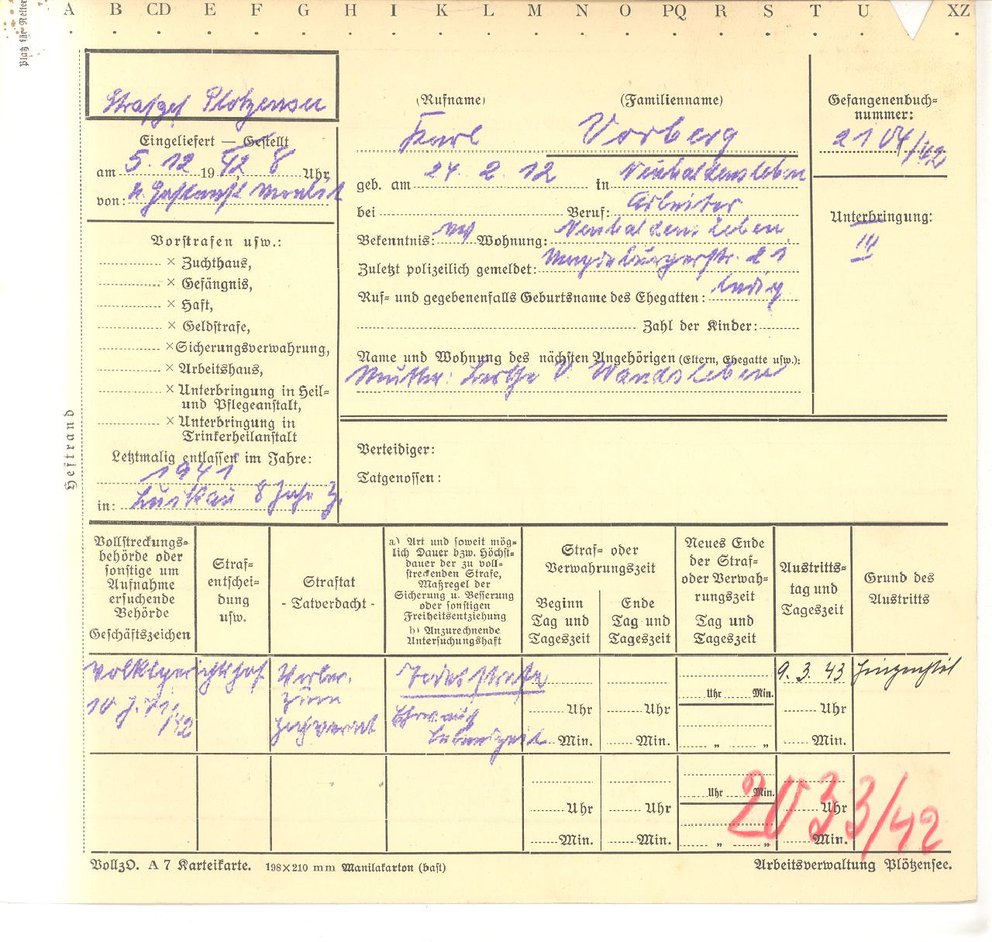 A B CD E F G H I K L M N O PQ R S T U XZ
Platz für Reiter
Heftrand
Strafgef Plötzensee
Eingeliefert — Gestellt
am 5. 12 1942 8 Uhr
von:
Vorstrafen usw.:
× Zuchthaus,
× Gefängnis,
× Haft,
× Geldstrafe,
× Sicherungsverwahrung,
× Arbeitshaus,
× Unterbringung in Heil-
und Pflegeanstalt,
× Unterbringung in
Trinkerheilanstalt
Letztmalig entlassen im Jahre:
1941
in: Luckau 8 Jahr Z.
(Rufname) (Familienname)
Karl Vorberg
geb. am 24 2 12 in Neuhaldensleben
bei Beruf: Arbeiter
Bekenntnis: Wohnung: Neuhaldensleben
Zuletzt polizeilich gemeldet: Magdeburgerstr. 23
Ruf- und gegebenenfalls Geburtsname des Ehegatten: ledig
Zahl der Kinder:
Name und Wohnung des nächsten Angehörigen (Eltern, Ehegatte usw.):
Mutter: V.
Gefangenenbuch-
nummer:
2104/42
Unterbringung:
III
Verteidiger:
Tatgenossen:
Vollstreckungs-
behörde oder
sonstige um
Aufnahme
ersuchende
Behörde
Geschäftszeichen
Straf-
entschei-
dung
usw.
Straftat
- Tatverdacht -
a) Art und soweit mög-
lich Dauer bzw. Höchst-
dauer der zu voll-
streckenden Strafe,
Maßregel der
Sicherung u. Besserung
oder sonstigen
Freiheitsentziehung
b) Anzurechnende
Untersuchungshaft
Straf- oder
Verwahrungszeit
Beginn
Tag und
Tageszeit
Ende
Tag und
Tageszeit
Neues Ende
der Straf-
oder Verwah-
rungszeit
Tag und
Tageszeit
Austritts-
tag und
Tageszeit
Grund des
Austritts
Volksgerichtshof
10 J. 71/42
Vorber.
zum
Hochverrat
Todesstrafe
Ehrverl. auf
Lebenszeit
Uhr
Min.
Uhr
Min.
Uhr Min.
" "
9. 3. 43
Uhr
Min.
Hingerichtet
Uhr
Min.
Uhr
Min.
Uhr Min.
" "
Uhr
Min.
2033/42
VollzO. A 7 Karteikarte. 198×210 mm Manilakarton (hast)
Arbeitsverwaltung Plötzensee.